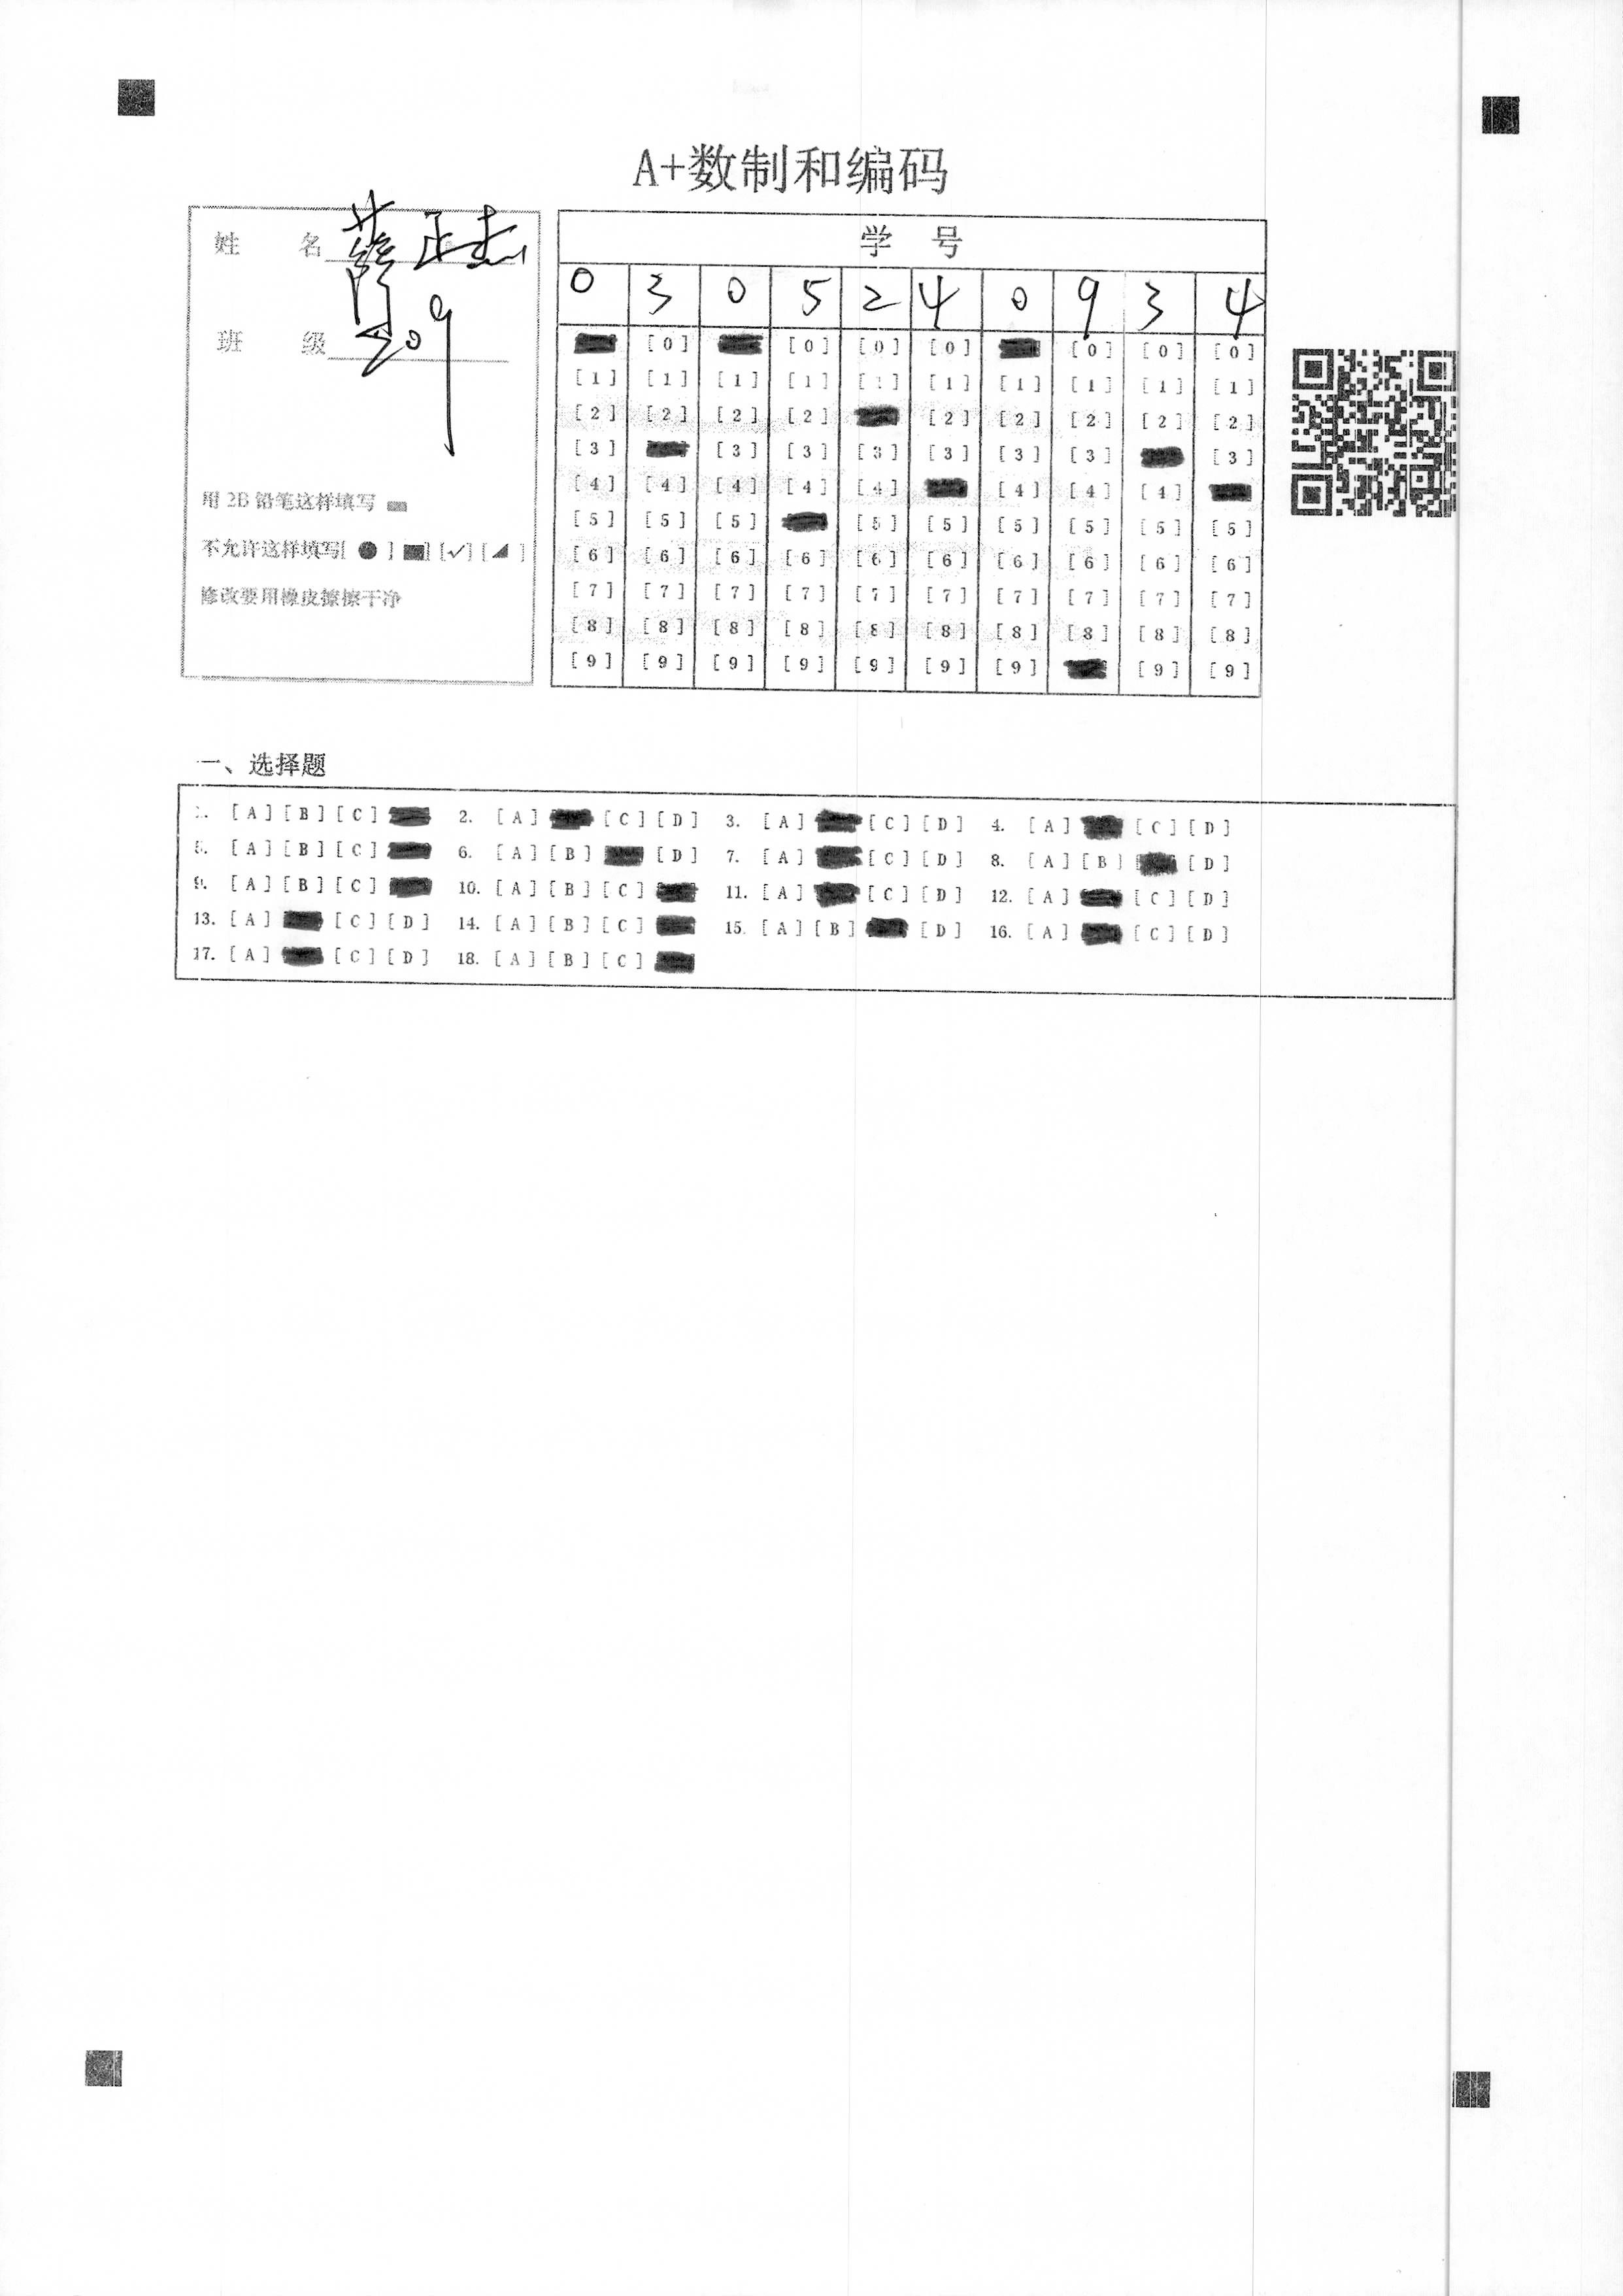 A+数制和编码
姓 名 薛正杰
班 级 209
用 2B 铅笔这样填写
不允许这样填写[ ● ] [■] [✓] [◢ ]
修改要用橡皮擦擦干净
学 号
0 3 0 5 2 4 0 9 3 4
[0] [0] [0] [0] [0] [0] [0]
[1] [1] [1] [1] [1] [1] [1] [1] [1] [1]
[2] [2] [2] [2] [2] [2] [2] [2] [2]
[3] [3] [3] [3] [3] [3] [3] [3]
[4] [4] [4] [4] [4] [4] [4] [4]
[5] [5] [5] [5] [5] [5] [5] [5] [5]
[6] [6] [6] [6] [6] [6] [6] [6] [6] [6]
[7] [7] [7] [7] [7] [7] [7] [7] [7] [7]
[8] [8] [8] [8] [8] [8] [8] [8] [8] [8]
[9] [9] [9] [9] [9] [9] [9] [9] [9]
一、选择题
1. [A] [B] [C] 2. [A] [C] [D] 3. [A] [C] [D] 4. [A] [C] [D]
5. [A] [B] [C] 6. [A] [B] [D] 7. [A] [C] [D] 8. [A] [B] [D]
9. [A] [B] [C] 10. [A] [B] [C] 11. [A] [C] [D] 12. [A] [C] [D]
13. [A] [C] [D] 14. [A] [B] [C] 15. [A] [B] [D] 16. [A] [C] [D]
17. [A] [C] [D] 18. [A] [B] [C]